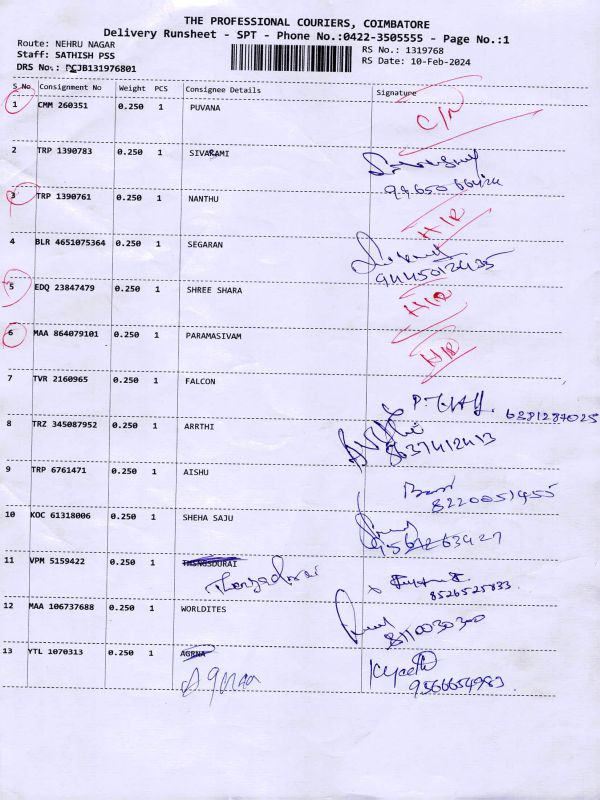 THE PROFESSIONAL COURIERS, COIMBATORE
Delivery Runsheet - SPT - Phone No.:0422-3505555 - Page No.:1
Route: NEHRU NAGAR
Staff: SATHISH PSS
RS No.: 1319768
RS Date: 10-Feb-2024
S No Consignment No Weight PCS Consignee Details Signature
1 CMM 260351 0.250 1 PUVANA
2 TRP 1390783 0.250 1 SIVARAMI
3 TRP 1390761 0.250 1 NANTHU
H/R
4 BLR 4651075364 0.250 1 SEGARAN
9445012435
5 EDQ 23847479 0.250 1 SHREE SHARA
H/R
6 MAA 864079101 0.250 1 PARAMASIVAM
H/R
7 TVR 2160965 0.250 1 FALCON
6381287025
8 TRZ 345087952 0.250 1 ARRTHI
8637412413
9 TRP 6761471 0.250 1 AISHU
8220051455
10 KOC 61318006 0.250 1 SHEHA SAJU
11 VPM 5159422 0.250 1
8526525833
12 MAA 106737688 0.250 1 WORLDITES
8110030300
13 YTL 1070313 0.250 1 AGRNA
9566654983